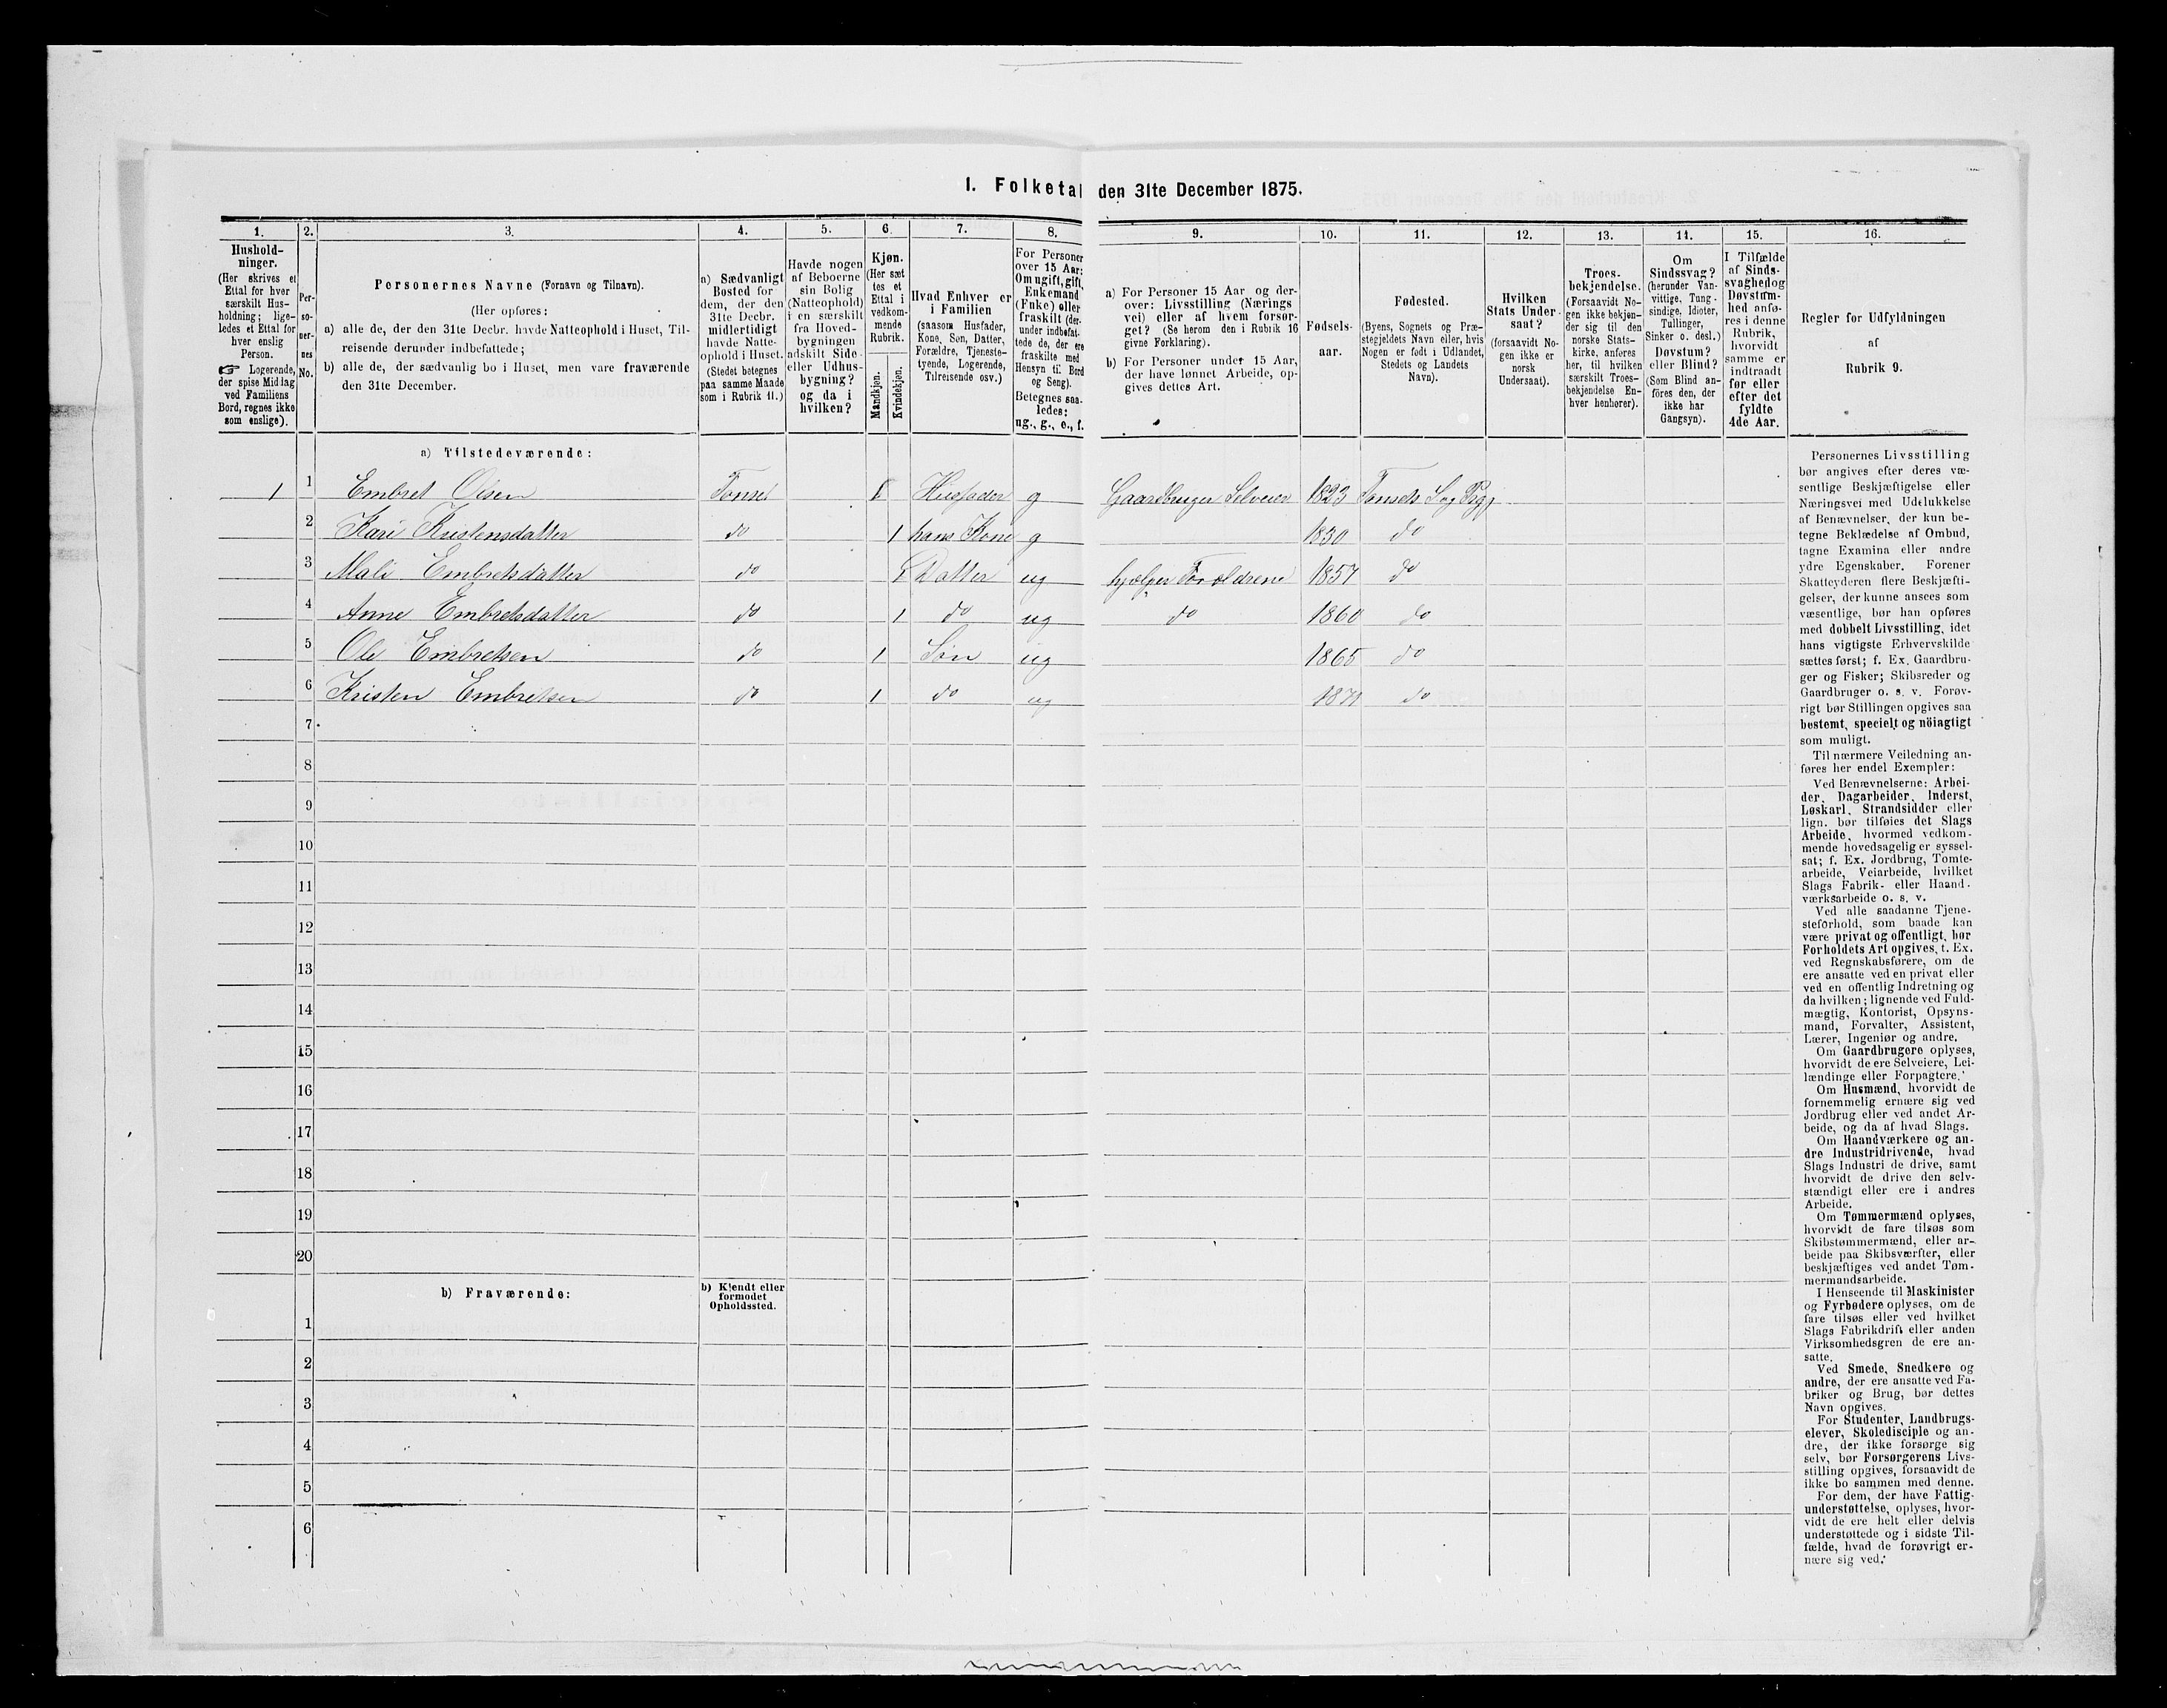 1. Folketal den 31te December 1875.
1.
Hushold-
ninger.
(Her skrives et
Ettal for hver
særskilt Hus-
holdning; lige-
ledes et Ettal for
hver enslig
Person.
☞ Logerende,
der spise Middag
ved Familiens
Bord, regnes ikke
som enslige).
2.
Per-
so-
ner-
nes
No.
3.
Personernes Navne (Fornavn og Tilnavn).
(Her opføres:
a) alle de, der den 31te Decbr. havde Natteophold i Huset, Til-
reisende derunder indbefattede;
b) alle de, der sædvanlig bo i Huset, men vare fraværende
den 31te December.
4.
a) Sædvanligt
Bosted for
dem, der den
31te Decbr.
midlertidigt
havde Natte-
ophold i Huset.
(Stedet betegnes
paa samme Maade
som i Rubrik 11.)
5.
Havde nogen
af Beboerne
sin Bolig
(Natteophold)
i en særskilt
fra Hoved-
bygningen
adskilt Side-
eller Udhus-
bygning?
og da i
hvilken?
6.
Kjøn.
(Her sæt
tes et
Ettal i
vedkom-
mende
Rubrik.
Mandkjøn.
Kvindekjøn.
7.
Hvad Enhver er
i Familien
(saasom Husfader,
Kone, Søn, Datter,
Forældre, Tjeneste-
tyende, Logerende,
Tilreisende osv.)
8.
For Personer
over 15 Aar:
Om ugift, gift,
Enkemand
(Enke) eller
fraskilt (der-
under indbefat-
tede de, der ere
fraskilte med
Hensyn til Bord
og Seng).
Betegnes saa-
ledes:
ug., g., e., f.
9.
a) For Personer 15 Aar og der-
over: Livsstilling (Nærings
vei) eller af hvem forsør-
get? (Se herom den i Rubrik 16
givne Forklaring).
b) For Personer under 15 Aar,
der have lønnet Arbeide, op-
gives dettes Art.
10.
Fødsels-
aar.
11.
Fødested.
(Byens, Sognets og Præ-
stegjeldets Navn eller, hvis
Nogen er født i Udlandet,
Stedets og Landets
Navn).
12.
Hvilken
Stats Under-
saat?
(forsaavidt No-
gen ikke er
norsk
Undersaat).
13.
Troes-
bekjendelse.
(Forsaavidt No-
gen ikke bekjen-
der sig til den
norske Stats-
kirke, anføres
her, til hvilken
særskilt Troes-
bekjendelse En-
hver henhører).
14.
Om
Sindssvag?
(herunder Van-
vittige, Tung-
sindige, Idioter,
Tullinger,
Sinker o. desl.)
Døvstum?
eller Blind?
(Som Blind an-
føres den, der
ikke har
Gangsyn).
15.
I Tilfælde
af Sinds-
svaghed og
Døvstum-
hed anfø-
res i denne
Rubrik,
hvorvidt
samme er
indtraadt
før eller
efter det
fyldte
4de Aar.
16.
Regler for Udfyldningen
af
Rubrik 9.
a) Tilstedeværende:
1 1 Embret Olsen Tonset 1 Husfader g Gaardbruger Selveier 1823 Tonsets Sog Prgj
2 Kari Kristensdatter do 1 hans Kone g 1830 do
3 Mali Embretsdatter do 1 Datter ug hjælper Forældrene 1857 do
4 Anne Embretsdatter do 1 do ug do 1860 do
5 Ole Embretsen do 1 Søn ug 1865 do
6 Kristen Embretsen do 1 do ug 1871 do
7
8
9
10
11
12
13
14
15
16
17
18
19
20
b) Fraværende:
b) Kjendt eller
formodet
Opholdssted.
1
2
3
4
5
6
Personernes Livsstilling
bør angives efter deres væ-
sentlige Beskjæftigelse eller
Næringsvei med Udelukkelse
af Benævnelser, der kun be-
tegne Beklædelse af Ombud,
tagne Examina eller andre
ydre Egenskaber. Forener
Skatteyderen flere Beskjæfti-
gelser, der kunne ansees som
væsentlige, bør han opføres
med dobbelt Livsstilling, idet
hans vigtigste Erhvervskilde
sættes først; f. Ex. Gaardbru-
ger og Fisker; Skibsreder og
Gaardbruger o. s. v. Forøv-
rigt bør Stillingen opgives saa
bestemt, specielt og nöiagtigt
som muligt.
Til nærmere Veiledning an-
føres her endel Exempler:
Ved Benævnelserne: Arbei-
der, Dagarbeider, Inderst,
Løskarl, Strandsidder eller
lign. bør tilføies det Slags
Arbeide, hvormed vedkom-
mende hovedsagelig er syssel-
sat; f. Ex. Jordbrug, Tomte-
arbeide, Veiarbeide, hvilket
Slags Fabrik- eller Haand-
værksarbeide o. s. v.
Ved alle saadanne Tjene-
steforhold, som baade kan
være privat og offentligt, bør
Forholdets Art opgives, t. Ex.
ved Regnskabsførere, om de
ere ansatte ved en privat eller
ved en offentlig Indretning og
da hvilken; lignende ved Fuld-
mægtig, Kontorist, Opsyns-
mand, Forvalter, Assistent,
Lærer, Ingeniør og andre.
Om Gaardbrugere oplyses,
hvorvidt de ere Selveiere, Lei-
lændinge eller Forpagtere.
Om Husmænd, hvorvidt de
fornemmelig ernære sig ved
Jordbrug eller ved andet Ar-
beide, og da af hvad Slags.
Om Haandværkere og an-
dre Industridrivende, hvad
Slags Industri de drive, samt
hvorvidt de drive den selv-
stændigt eller ere i andres
Arbeide.
Om Tømmermænd oplyses,
hvorvidt de fare tilsøs som
Skibstømmermænd, eller ar-
beide paa Skibsværfter, eller
beskjæftiges ved andet Tøm-
mermandsarbeide.
I Henseende til Maskinister
og Fyrbødere oplyses, om de
fare tilsøs eller ved hvilket
Slags Fabrikdrift eller anden
Virksomhedsgren de ere an-
satte.
Ved Smede, Snedkere og
andre, der ere ansatte ved Fa-
briker og Brug, bør dettes
Navn opgives.
For Studenter, Landbrugs-
elever, Skoledisciple og an-
dre, der ikke forsørge sig
selv, bør Forsørgerens Livs-
stilling opgives, forsaavidt de
ikke bo sammen med denne.
For dem, der have Fattig-
understøttelse, oplyses, hvor-
vidt de ere helt eller delvis
understøttede og i sidste Til-
fælde, hvad de forøvrigt er-
nære sig ved.